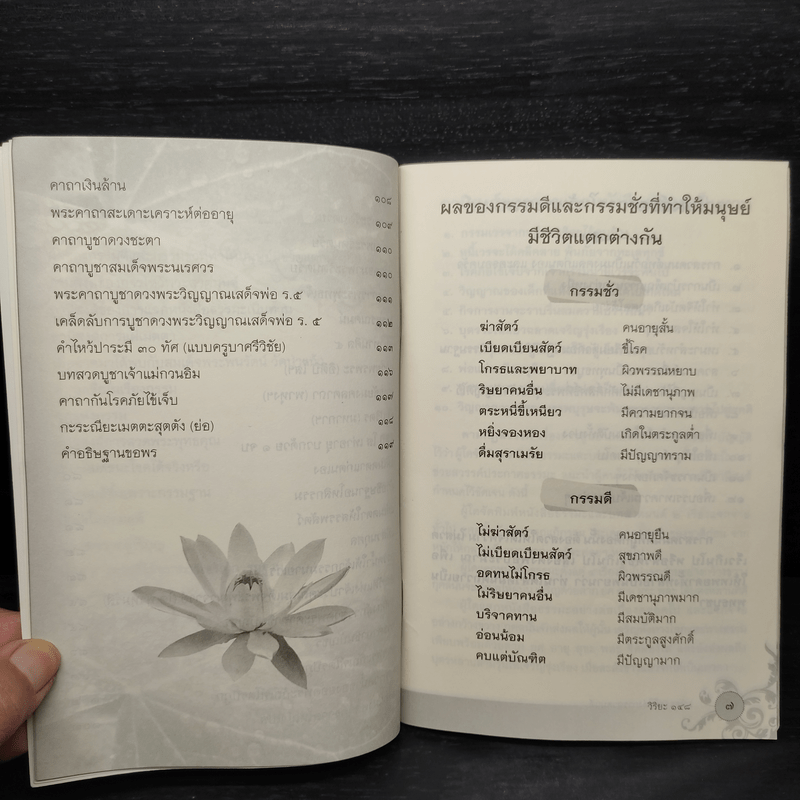 คาถาเงินล้าน ๑๐๘
พระคาถาสะเดาะเคราะห์ต่ออายุ ๑๐๙
คาถาบูชาดวงชะตา ๑๑๐
คาถาบูชาสมเด็จพระนเรศวร ๑๑๐
พระคาถาบูชาดวงพระวิญญาณเสด็จพ่อ ร.๕ ๑๑๑
เคล็ดลับการบูชาดวงพระวิญญาณเสด็จพ่อ ร. ๕ ๑๑๒
คำไหว้ปาระมี ๓๐ ทัศ (แบบครูบาศรีวิชัย) ๑๑๓
บทสวดบูชาเจ้าแม่กวนอิม ๑๑๖
คาถากันโรคภัยไข้เจ็บ ๑๑๗
กะระณียะเมตตะสุตตัง (ย่อ) ๑๑๘
คำอธิษฐานขอพร ๑๑๙
ผลของกรรมดีและกรรมชั่วที่ทำให้มนุษย์
มีชีวิตแตกต่างกัน
กรรมชั่ว
ฆ่าสัตว์ คนอายุสั้น
เบียดเบียนสัตว์ ขี้โรค
โกรธและพยาบาท ผิวพรรณหยาบ
ริษยาคนอื่น ไม่มีเดชานุภาพ
ตระหนี่ขี้เหนียว มีความยากจน
หยิ่งจองหอง เกิดในตระกูลต่ำ
ดื่มสุราเมรัย มีปัญญาทราม
กรรมดี
ไม่ฆ่าสัตว์ คนอายุยืน
ไม่เบียดเบียนสัตว์ สุขภาพดี
อดทนไม่โกรธ ผิวพรรณดี
ไม่ริษยาคนอื่น มีเดชานุภาพมาก
บริจาคทาน มีสมบัติมาก
อ่อนน้อม มีตระกูลสูงศักดิ์
คบแต่บัณฑิต มีปัญญามาก
วิริยะ ๑๔๘ ๗